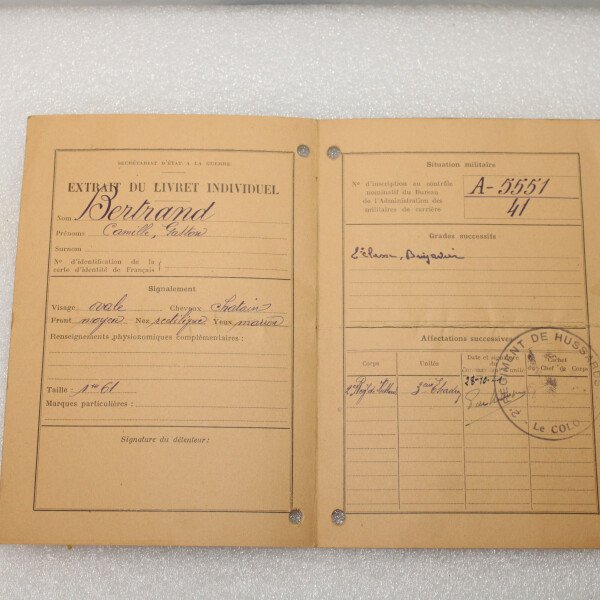 SECRÉTARIAT D'ÉTAT A LA GUERRE
EXTRAIT DU LIVRET INDIVIDUEL
Nom Bertrand
Prénoms Camille, Gaston
Surnom
N° d'identification de la
carte d'identité de Français
Signalement
Visage ovale Cheveux
Front moyen Nez rectiligne Yeux marron
Renseignements physionomiques complémentaires :
Taille : 1m61
Marques particulières :
Signature du détenteur :
Situation militaire
N° d'inscription au contrôle
nominatif du Bureau
de l'Administration des
militaires de carrière
A-5551
41
Grades successifs
2e classe, Brigadier
Affectations successives
Corps
Unités
Date et signature
Cachet
du Chef de Corps
28-10-41
2e
3ème
2e RÉGIMENT DE HUSSARDS
Le COLO